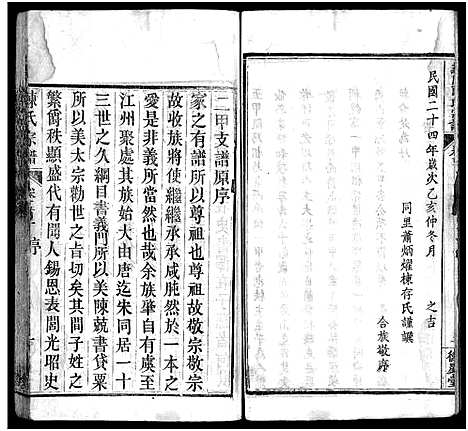 民國二十四年歲次乙亥仲冬月
之吉
同里蕭炳燿棟存氏謹譔
合族敬序
二甲支譜原序
家之有譜所以尊祖也尊祖故敬宗敬宗
故收族將使繼繼承承咸肫然於一本之
愛是非義所當然也哉余族肇自有虞至
江州聚處其族始大由唐迄宋同居一十
三世之久綱目書義門所以美陳兢書貸粟
所以美太宗勸世之旨切矣其間子姓之
繁爵秩顯盛代有聞人錫恩表閭光昭史
陳氏宗譜
序